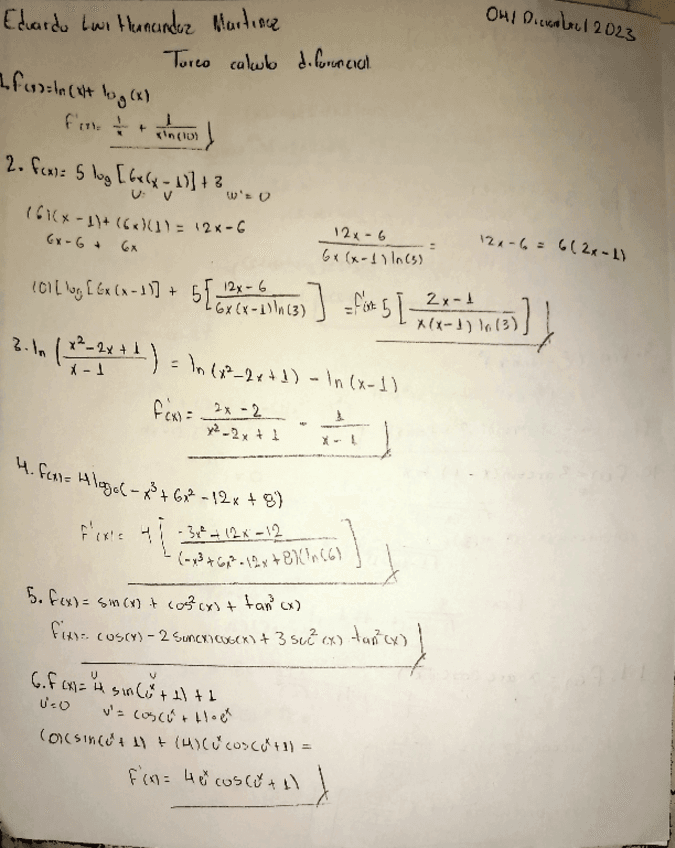 Eduardo Luis Hernandez Martinez
04/Diciembre/2023
Tarea calculo diferencial
1. f(x)=ln(x)+ log(x)
f'(x)= 1/x + 1/(xln(10))
2. f(x)= 5 log [6x(x-1)]+3
U= V W'=0
(6)(x-1)+(6x)(1) = 12x-6
6x-6 + 6x
(12x-6)/(6x(x-1)ln(3)) = 12x-6 = 6(2x-1)
(0)[log[6x(x-1)] + 5[(12x-6)/(6x(x-1)ln(3))] = f'(x)= 5[(2x-1)/(x(x-1)ln(3))]
3. ln((x²-2x+1)/(x-1)) = ln(x²-2x+1) - ln(x-1)
f'(x)= (2x-2)/(x²-2x+1) - 1/(x-1)
4. f(x)= 4log6(-x³+6x²-12x+8)
f'(x)= 4[(-3x²+12x-12)/((-x³+6x²-12x+8)(ln(6))]
5. f(x)= sin(x) + cos²(x) + tan³(x)
f'(x)= cos(x) - 2sen(x)cos(x) + 3 sec²(x) tan²(x)
U V
6. f(x)= 4 sin(eˣ+1)+1
U'=0 V'= cos(eˣ+1)•eˣ
(0)(sin(eˣ+1) + (4)(eˣcos(eˣ+1) =
f'(x)= 4eˣcos(eˣ+1)